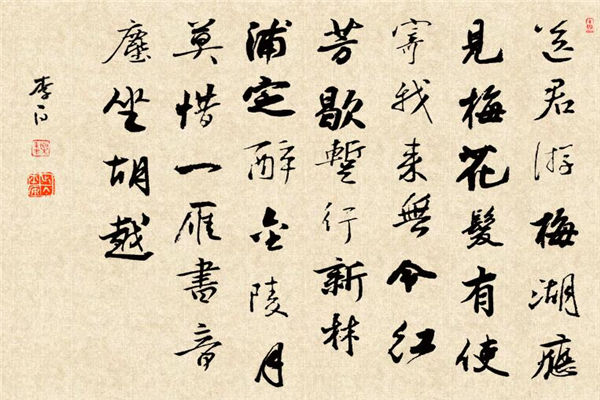 送君游梅湖應
見梅花髮有使
寄我来無令紅
芳歇暫行新林
浦定醉金陵月
莫惜一雁書音
塵坐胡越
李白